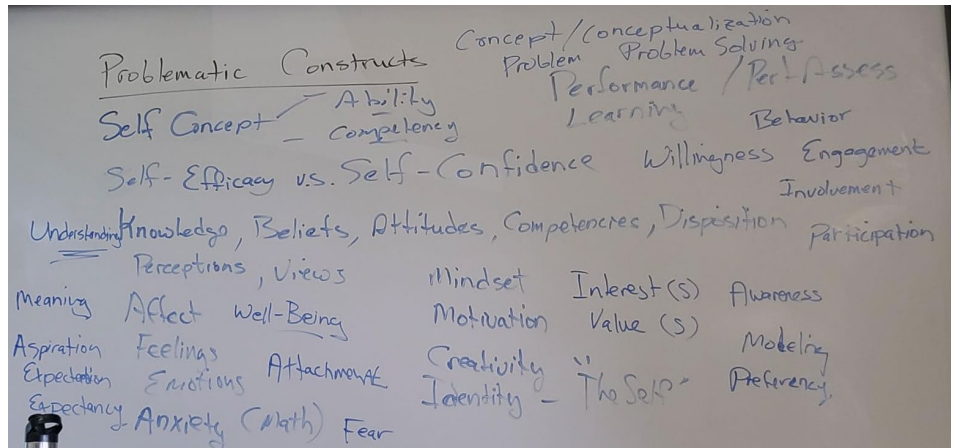 Concept/Conceptualization
Problematic Constructs
Problem Problem Solving
Performance / Perf Assess
Self Concept - Ability
- Competency
Learning
Behavior
Self-Efficacy v.s. Self-Confidence Willingness Engagement
Involvement
Understanding Knowledge, Beliefs, Attitudes, Competencies, Disposition Participation
Perceptions, Views Mindset Interest(s) Awareness
Meaning Affect Well-Being Motivation Value(s)
Modeling
Aspiration Feelings Attachment Creativity
Expectation Emotions Identity - "The Self"
Expectancy Anxiety (Math) Fear